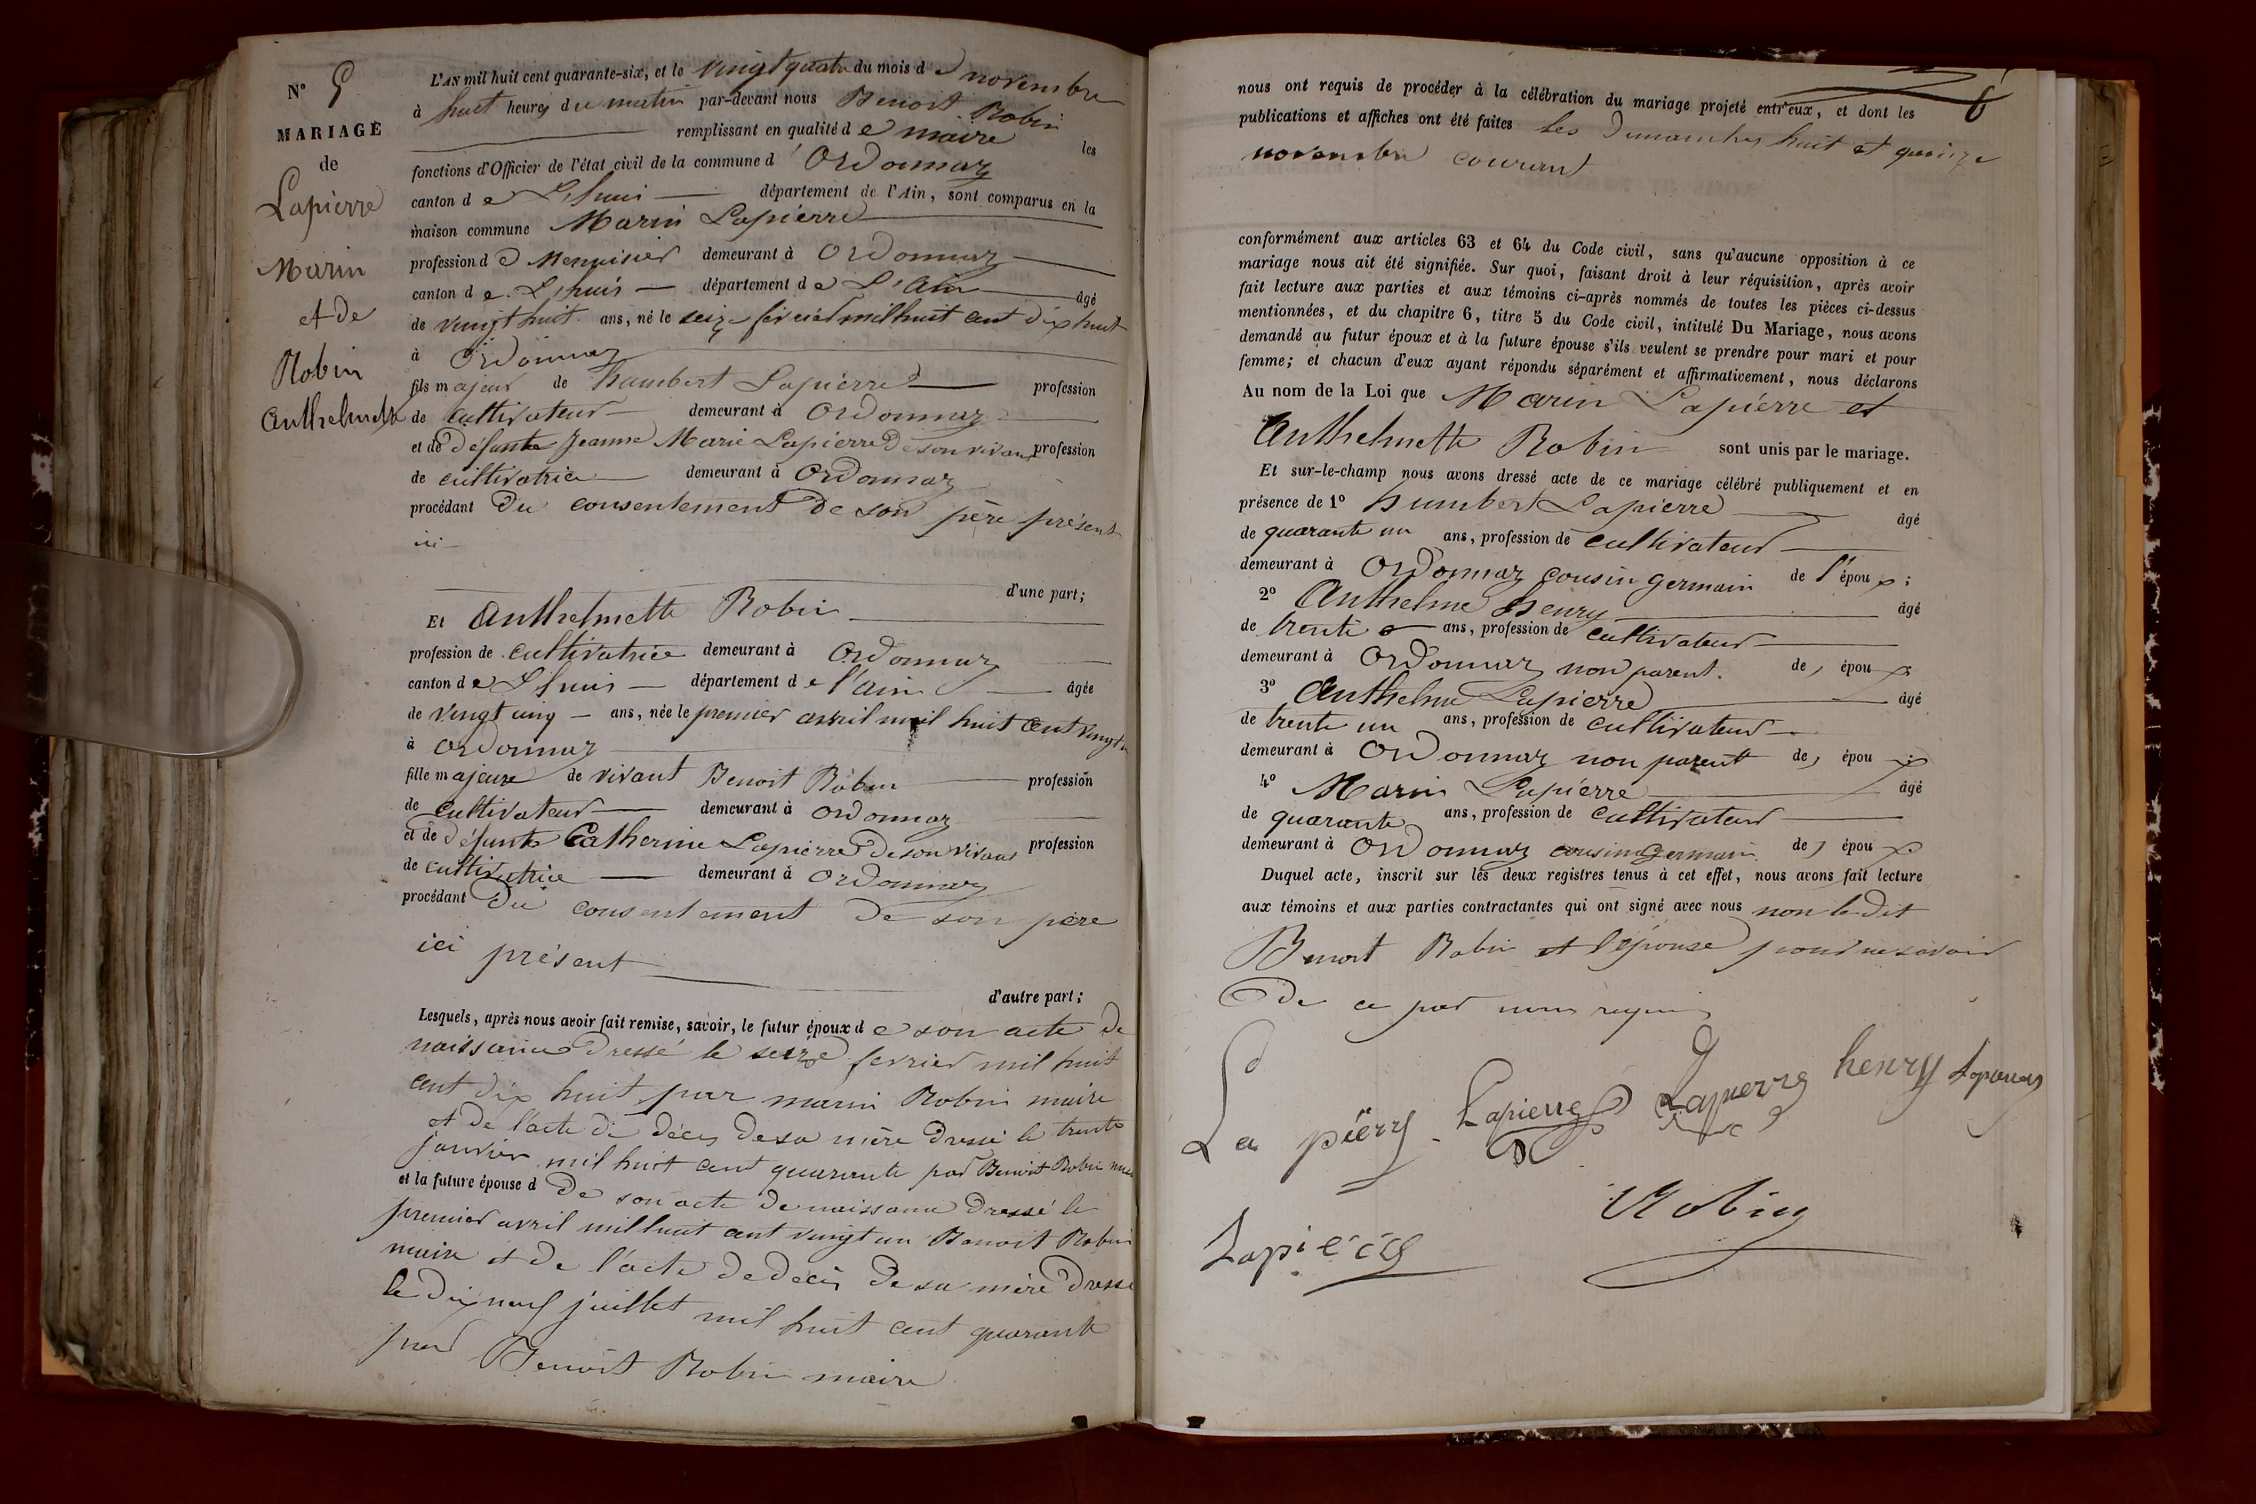 N° 5
MARIAGE
de
Lapierre
Marin
et de
Robin
Anthelmette
L'AN mil huit cent quarante-six, et le vingt quatre du mois de novembre
à huit heures du matin par-devant nous Benoit Robin
remplissant en qualité de maire les
fonctions d'Officier de l'état civil de la commune d'Ordonnaz
canton de Lhuis département de l'Ain, sont comparus en la
maison commune Marin Lapierre
profession de Menuisier demeurant à Ordonnaz
canton de Lhuis département de L'Ain âgé
de vingt huit ans, né le seize fevrier mil huit cent dix huit
à Ordonnaz
fils majeur de humbert Lapierre profession
de cultivateur demeurant à Ordonnaz
et de défunte Jeanne Marie Lapierre de son vivant profession
de cultivatrice demeurant à Ordonnaz
procédant du consentement de son père présent
ici
d'une part;
Et Anthelmette Robin
profession de cultivatrice demeurant à Ordonnaz
canton de Lhuis département de l'ain âgée
de vingt cinq ans, née le premier avril mil huit cent vingt un
à Ordonnaz
fille majeure de vivant Benoit Robin profession
de cultivateur demeurant à Ordonnaz
et de défunte Catherine Lapierre de son vivant profession
de cultivatrice demeurant à Ordonnaz
procédant du consentement de son père
ici présent
d'autre part;
Lesquels, après nous avoir fait remise, savoir, le futur époux de son acte de
naissance dressé le seize fevrier mil huit
cent dix huit par marin Robin maire
et de l'acte de décès de sa mère dressé le trente
janvier mil huit cent quarante par Benoit Robin maire
et la future épouse d de son acte de naissance dressé le
premier avril mil huit cent vingt un Benoit Robin
maire et de l'acte de décès de sa mère dressé
le dix neuf juillet mil huit cent quarante
par Benoit Robin maire
6
nous ont requis de procéder à la célébration du mariage projeté entr'eux, et dont les
publications et affiches ont été faites les dimanches huit et quinze
novembre courant
conformément aux articles 63 et 64 du Code civil, sans qu'aucune opposition à ce
mariage nous ait été signifiée. Sur quoi, faisant droit à leur réquisition, après avoir
fait lecture aux parties et aux témoins ci-après nommés de toutes les pièces ci-dessus
mentionnées, et du chapitre 6, titre 5 du Code civil, intitulé Du Mariage, nous avons
demandé au futur époux et à la future épouse s'ils veulent se prendre pour mari et pour
femme; et chacun d'eux ayant répondu séparément et affirmativement, nous déclarons
Au nom de la Loi que Marin Lapierre et
Anthelmette Robin sont unis par le mariage.
Et sur-le-champ nous avons dressé acte de ce mariage célébré publiquement et en
présence de 1° humbert Lapierre âgé
de quarante un ans, profession de cultivateur
demeurant à Ordonnaz cousin germain de l'époux;
2° Anthelme henry âgé
de trente ans, profession de cultivateur
demeurant à Ordonnaz non parent. de, époux
3° Anthelme Lapierre âgé
de trente un ans, profession de cultivateur
demeurant à Ordonnaz non parent de, époux;
4° Marin Lapierre âgé
de quarante ans, profession de cultivateur
demeurant à Ordonnaz cousin germain de, époux
Duquel acte, inscrit sur les deux registres tenus à cet effet, nous avons fait lecture
aux témoins et aux parties contractantes qui ont signé avec nous non le dit
Benoit Robin et l'épouse pour ne savoir
de ce par nous requis
Lapierre Lapierre henry
Lapierre
Robin